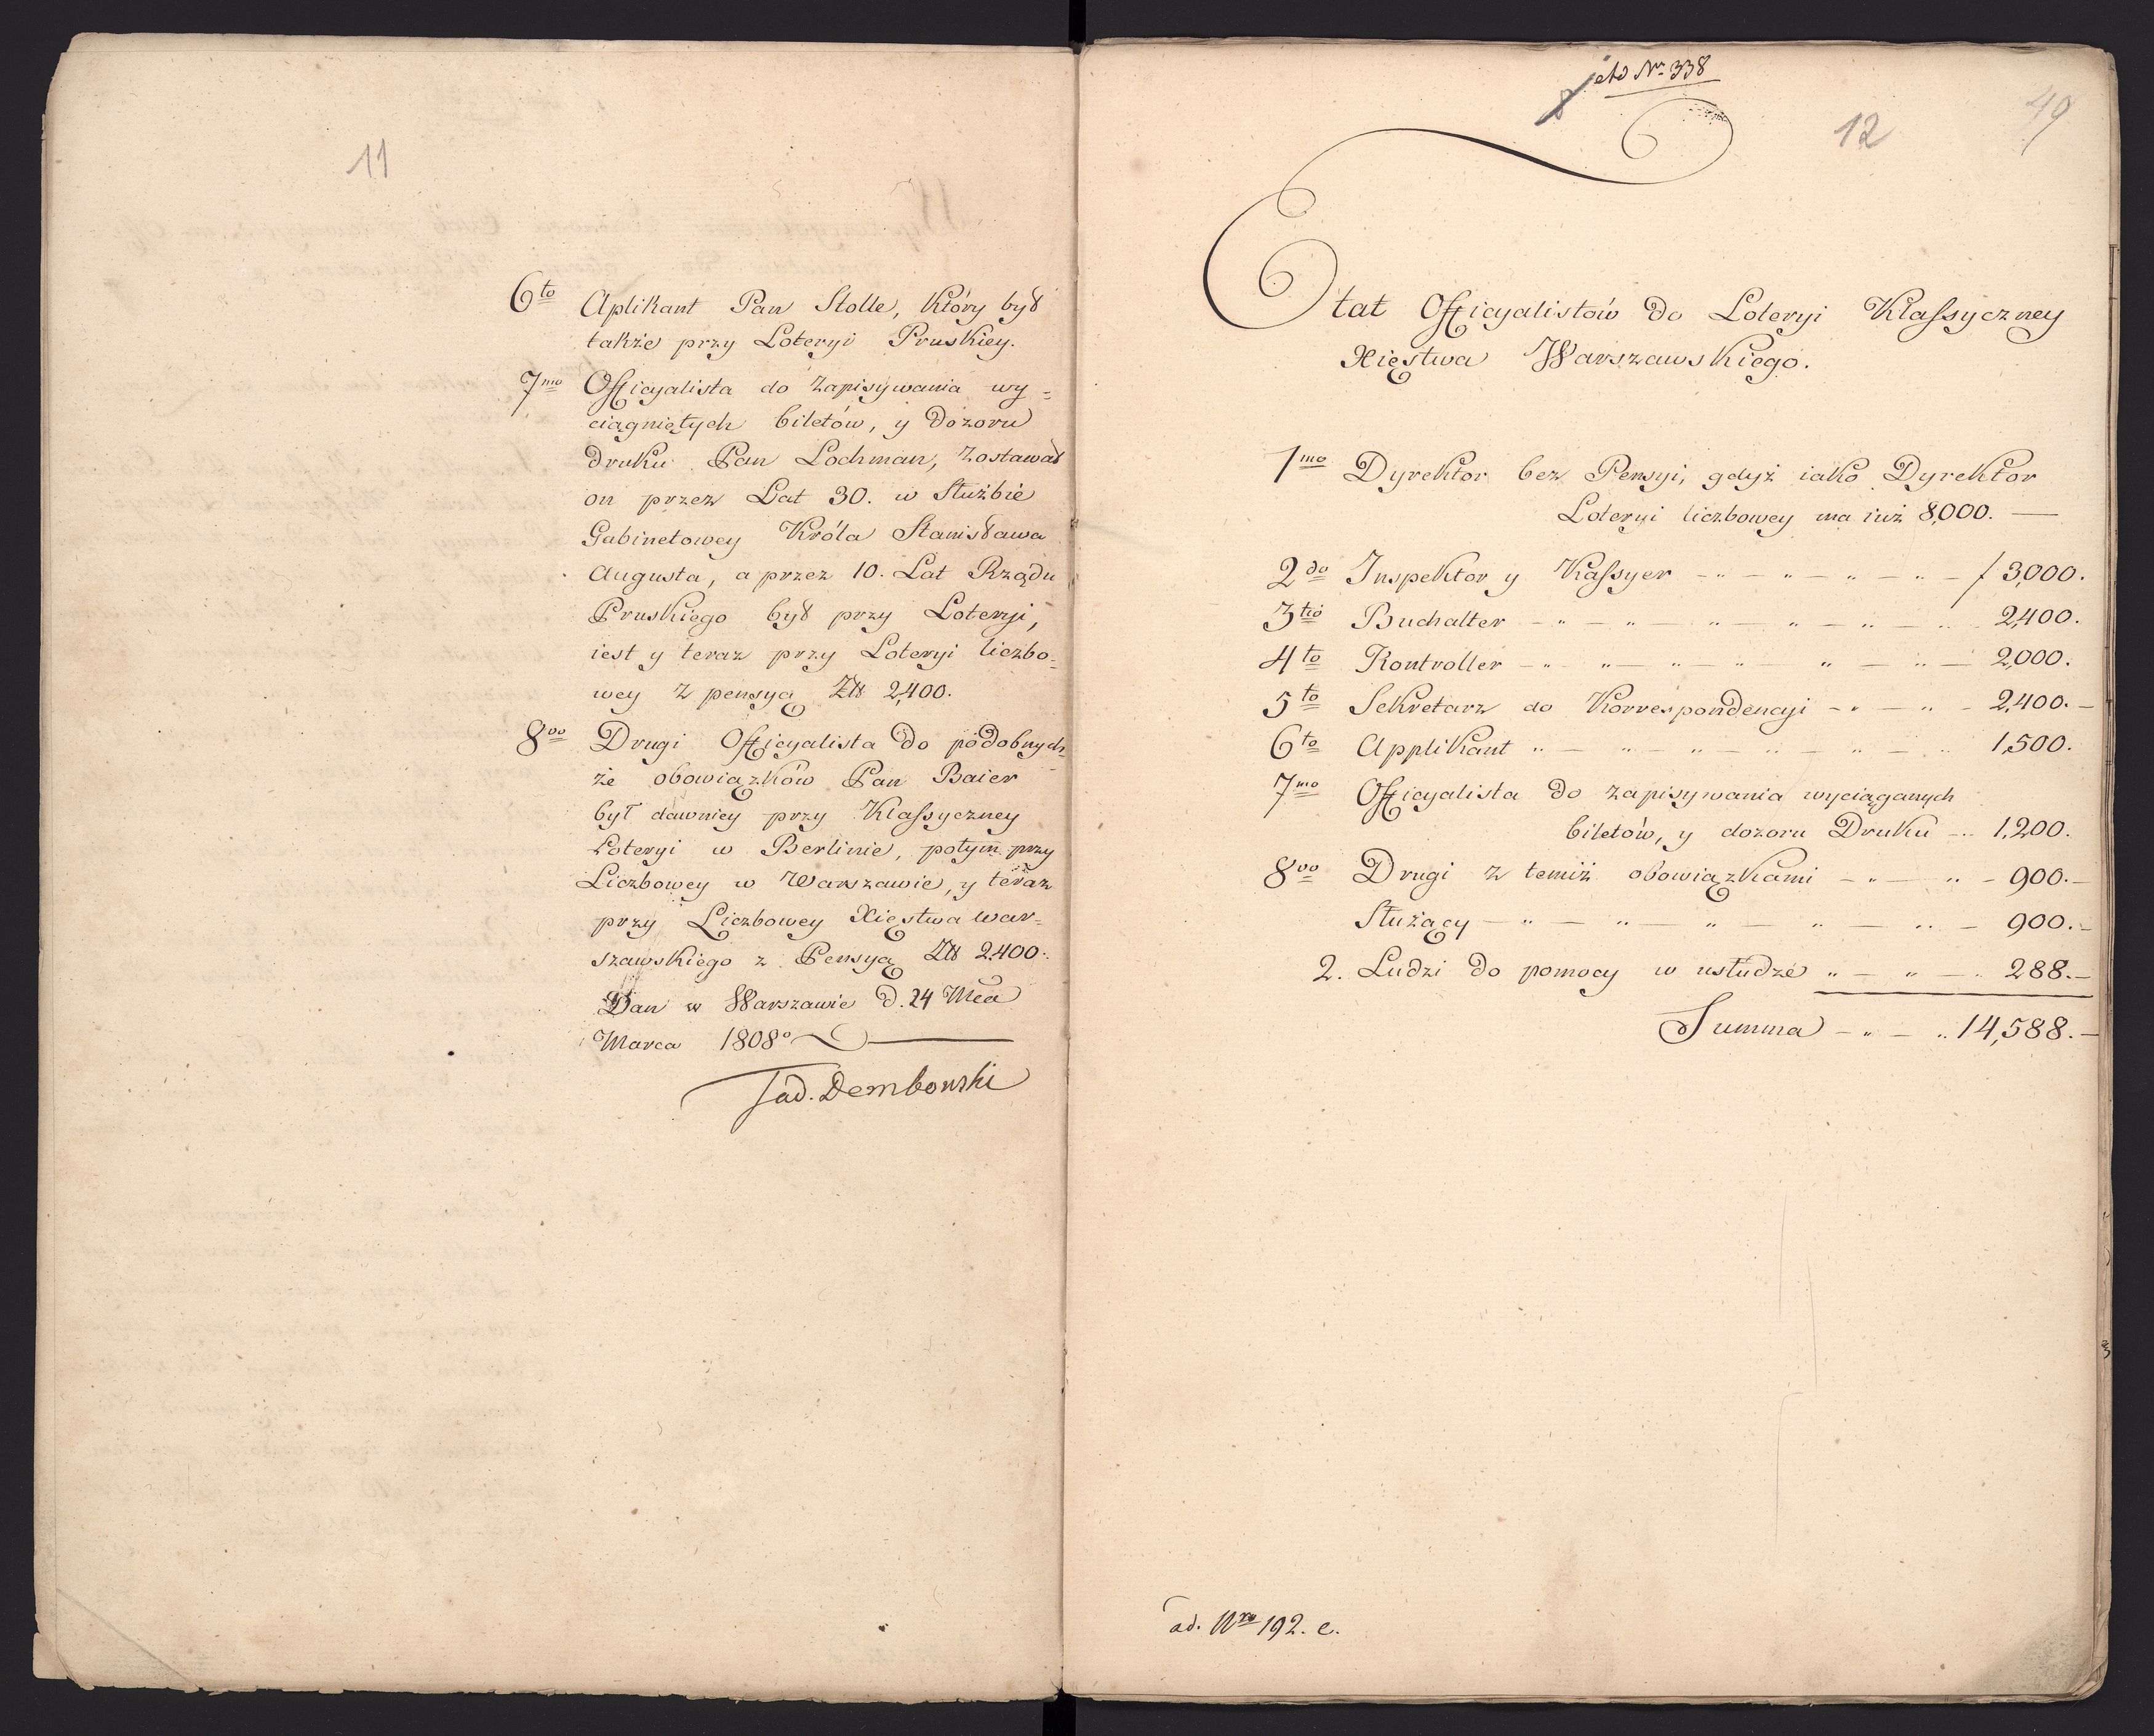 11
6to Aplikant Pan Stolle, który był
także przy Loteryi Pruskiey.
7mo Officyalista do zapisywania wy=
ciągniętych biletów, y dozoru
druku Pan Lochman, zostawał
on przez Lat 30. w Służbie
Gabinetowey Króla Stanisława
Augusta, a przez 10. Lat Rządu
Pruskiego był przy Loteryi,
iest y teraz przy Loteryi liczbo=
wey z pensyą Zł 2,400.
8vo Drugi Officyalista do podobnych
że obowiązków Pan Baier
był dawniey przy Klassyczney
Loteryi w Berlinie, potym przy
Liczbowey w Warszawie, y teraz
przy Liczbowey Xięstwa War=
szawskiego z Pensyą Zł 2400.
Dan w Warszawie d. 24 Mca
Marca 1808o
Tad. Dembowski
ad Nr 338
12
49
Etat Officyalistów do Loteryi Klassyczney
Xięstwa Warszawskiego.
1mo Dyrektor bez Pensyi, gdyż iako Dyrektor
Loteryi liczbowey ma iuż 8,000. —
2do Inspektor y Kassyer - „ - „ - „ - „ - f 3,000.
3tio Buchalter - „ - „ - „ - „ - „ - „ 2,400.
4to Kontroller - „ - „ - „ - „ - „ - „ - 2,000.
5to Sekretarz do Korrespondencyi - „ - „ - 2,400. -
6to Applikant „ - „ - „ - „ - „ - „ 1,500.
7mo Officyalista do zapisywania wyciąganych
biletów, y dozoru Druku - „ 1,200.
8vo Drugi z temiż obowiązkami - „ - „ - 900. -
Służący - „ - „ - „ - „ - „ - 900. -
2. Ludzi do pomocy w usłudze „ - „ - „ 288. -
Summa - „ - „ 14,588. -
ad. Nro 192. e.